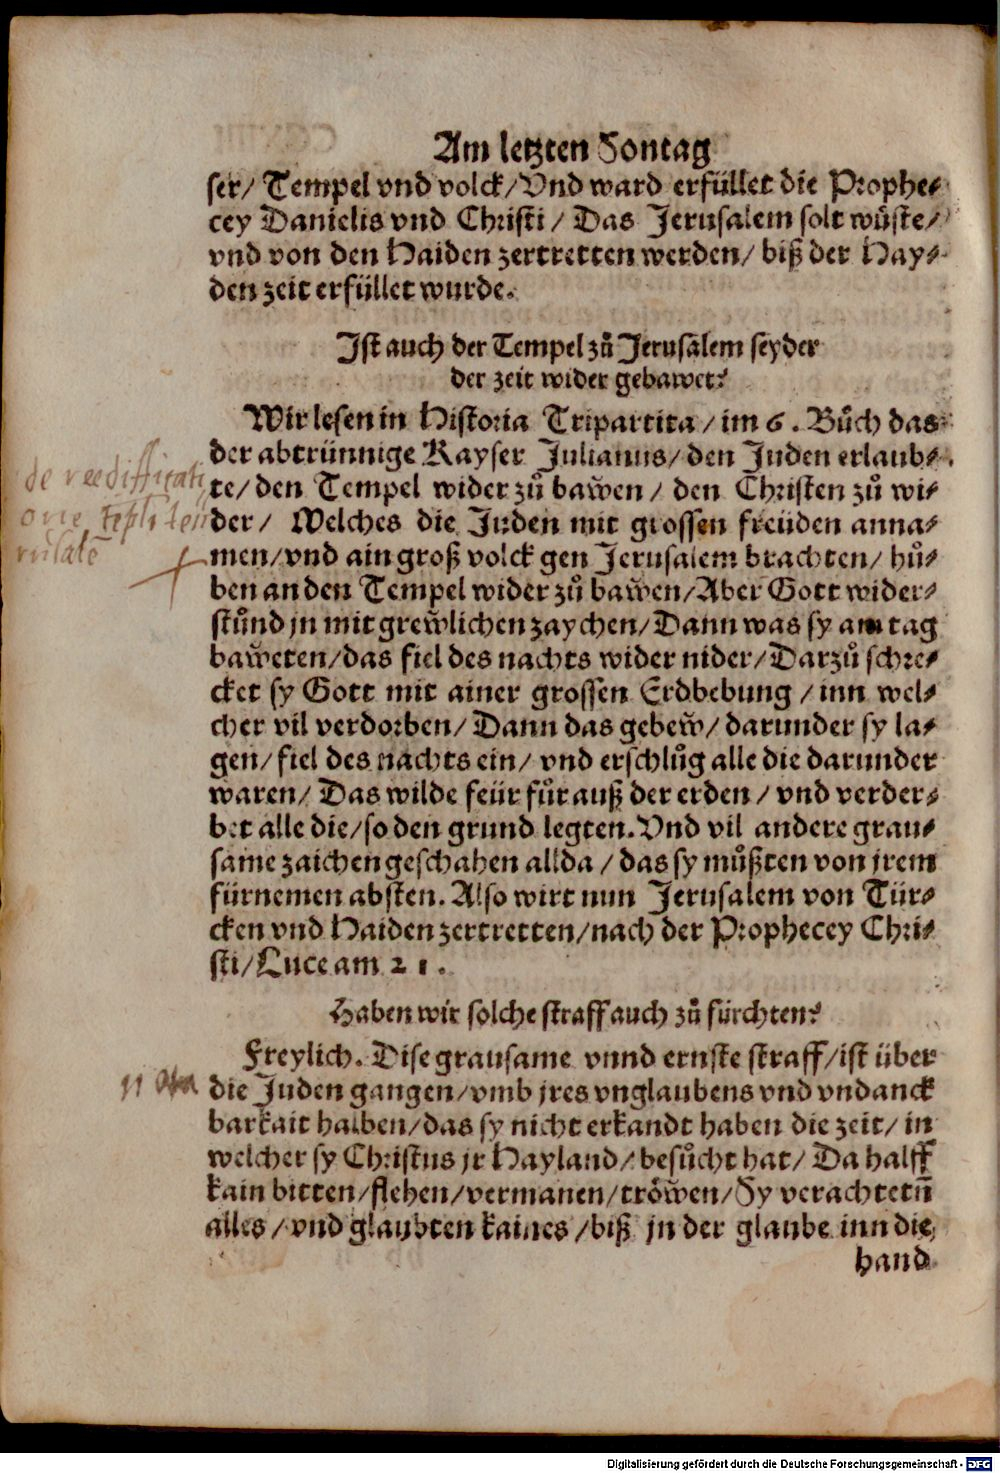 Am letzten Sontag
ser/ Tempel vnd volck/ Vnd ward erfüllet die Prophe⸗
cey Danielis vnd Christi/ Das Jerusalem solt wüste/
vnd von den Haiden zertretten werden/ biß der Hay⸗
den zeit erfüllet wurde.
Ist auch der Tempel zů Jerusalem seyder
der zeit wider gebawet?
Wir lesen in Historia Tripartita/ im 6. Bůch das
der abtrünnige Kayser Julianus/ den Juden erlaub⸗
te/ den Tempel wider zů baẅen/ den Christen zů wi⸗
der/ Welches die Juden mit grossen freüden anna⸗
men/ vnd ain groß volck gen Jerusalem brachten/ hů⸗
ben an den Tempel wider zů baẅen/ Aber Gott wider⸗
stůnd jn mit greẅlichen zaychen/ Dann was sy am tag
baẅeten/ das fiel des nachts wider nider/ Darzů schre⸗
cket sy Gott mit ainer grossen Erdbebung/ inn wel⸗
cher vil verdorben/ Dann das gebeẅ/ darunder sy la⸗
gen/ fiel des nachts ein/ vnd erschlůg alle die darunder
waren/ Das wilde feür für auß der erden/ vnd verder⸗
bet alle die/ so den grund legten. Vnd vil andere grau⸗
same zaichen geschahen allda/ das sy můßten von jrem
fürnemen absten. Also wirt nun Jerusalem von Tür⸗
cken vnd Haiden zertretten/ nach der Prophecey Chri⸗
sti/ Luce am 21.
Haben wir solche straff auch zů fürchten?
Freylich. Dise grausame vnnd ernste straff/ ist über
die Juden gangen/ vmb jres vnglaubens vnd vndanck
barkait halben/ das sy nicht erkandt haben die zeit/ in
welcher sy Christus jr Hayland/ besůcht hat/ Da halff
kain bitten/ flehen/ vermanen/ tröẅen/ Sy verachtetn̄
alles/ vnd glaubten kaines/ biß jn der glaube inn die
hand
de reedifficati
one tēpli Ieru
rusalē
Digitalisierung gefördert durch die Deutsche Forschungsgemeinschaft - DFG